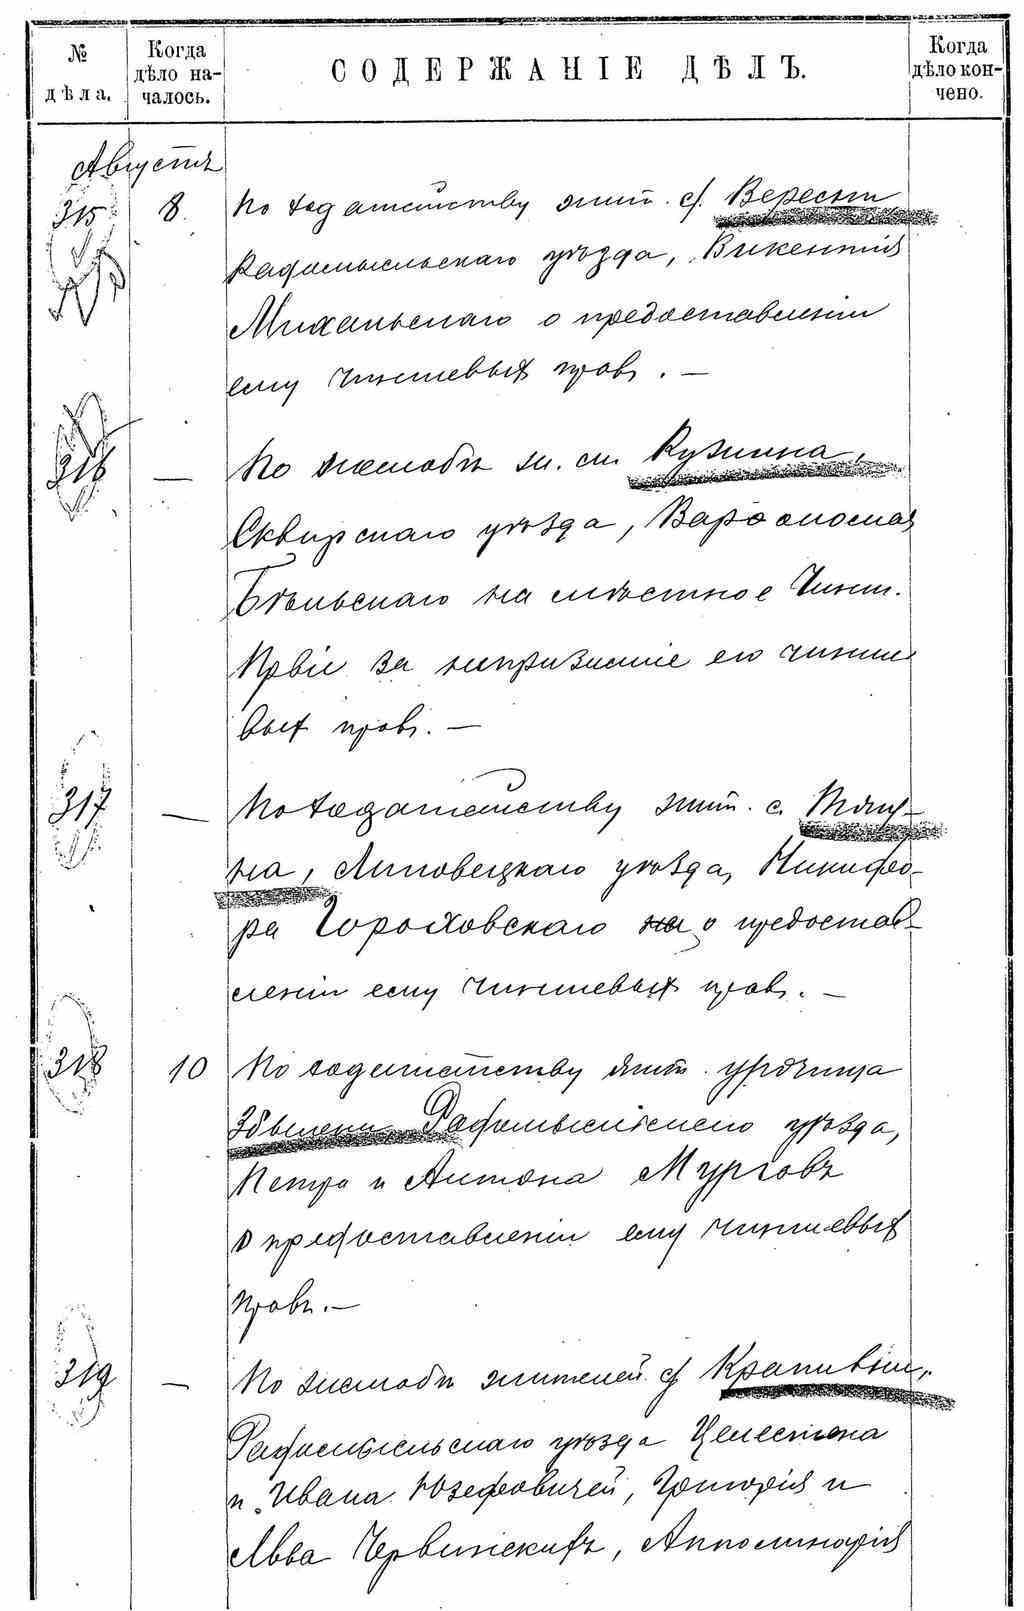 № дѣла.
Когда дѣло началось.
СОДЕРЖАНІЕ ДѢЛЪ.
Когда дѣло кончено.
Августъ
315 8. По ходатайству жит. с. Вересы
Радомысльскаго уѣзда, Викентія
Михальскаго о предоставленіи
ему чиншевыхъ правъ. —
316 — По жалобѣ м. Кузмина,
Сквирскаго уѣзда, Варѳоломея
Бѣльскаго на мѣстное Чинш.
Пр-віе за непризнаніе его чинше
выхъ правъ. —
317 — По ходатайству жит. с. Тягу-
на, Липовецкаго уѣзда, Никифо-
ра Гороховскаго о предостав-
леніи ему чиншевыхъ правъ. —
318 10 По ходатайству жит. урочища
Радомысльскаго уѣзда,
Петра и Антона Мурговъ
о предоставленіи ему чиншевыхъ
правъ. —
319 — По жалобѣ жителей с. Крапивни,
Радомысльскаго уѣзда Целестина
и Ивана Юзефовичей, Григорія и
Льва Червинскихъ, Апполинарія